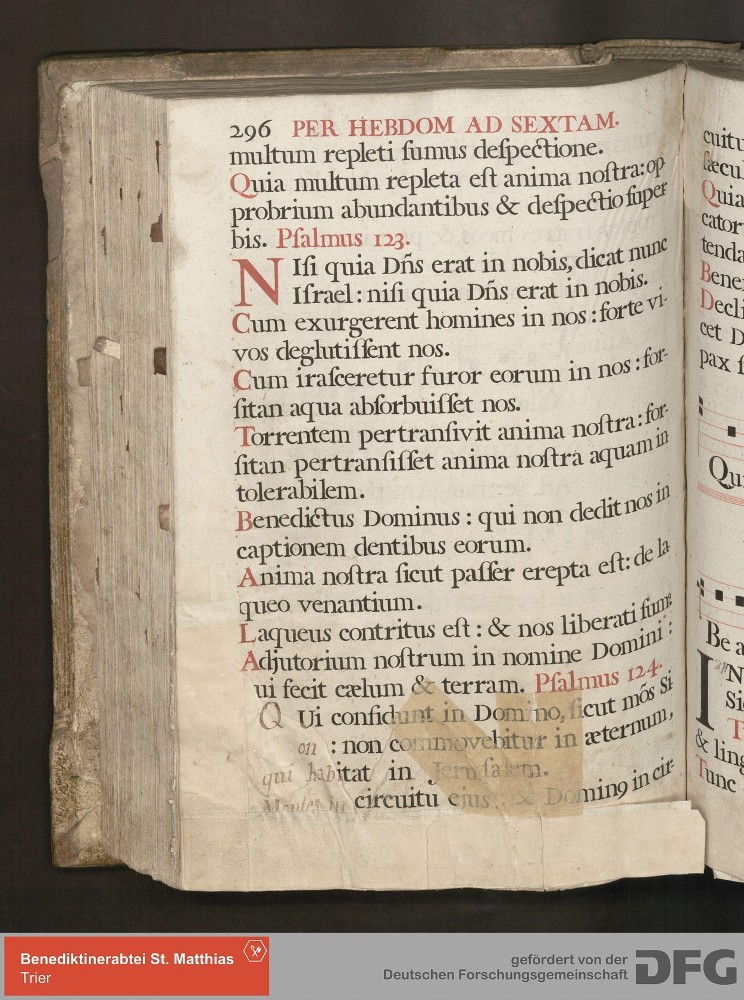 296 PER HEBDOM AD SEXTAM.
multum repleti ſumus deſpectione.
Quia multum repleta eſt anima noſtra: op
probrium abundantibus & deſpectio ſuper
bis. Pſalmus 123.
NIſi quia Dñs erat in nobis, dicat nunc
Iſrael: niſi quia Dñs erat in nobis.
Cum exurgerent homines in nos: forte vi-
vos deglutiſſent nos.
Cum iraſceretur furor eorum in nos: for-
ſitan aqua abſorbuiſſet nos.
Torrentem pertranſivit anima noſtra: for-
ſitan pertranſiſſet anima noſtra aquam in
tolerabilem.
Benedictus Dominus: qui non dedit nos in
captionem dentibus eorum.
Anima noſtra ſicut paſſer erepta eſt: de la
queo venantium.
Laqueus contritus eſt: & nos liberati ſum9
Adjutorium noſtrum in nomine Domini:
ui fecit cælum & terram. Pſalmus 124.
QUi confidunt in Domino, ſicut mõs Si
on: non commovebitur in æternum,
qui habitat in Jeruſalem.
Montes in circuitu ejus: & Domin9 in cir-
cuitu
ſæcul
Quia
cator
tenda
Bene
Decli
cet D
pax ſ
Qui
Be a
IN
Si
T
& ling
Tunc
Benediktinerabtei St. Matthias
Trier
gefördert von der
Deutschen Forschungsgemeinschaft DFG